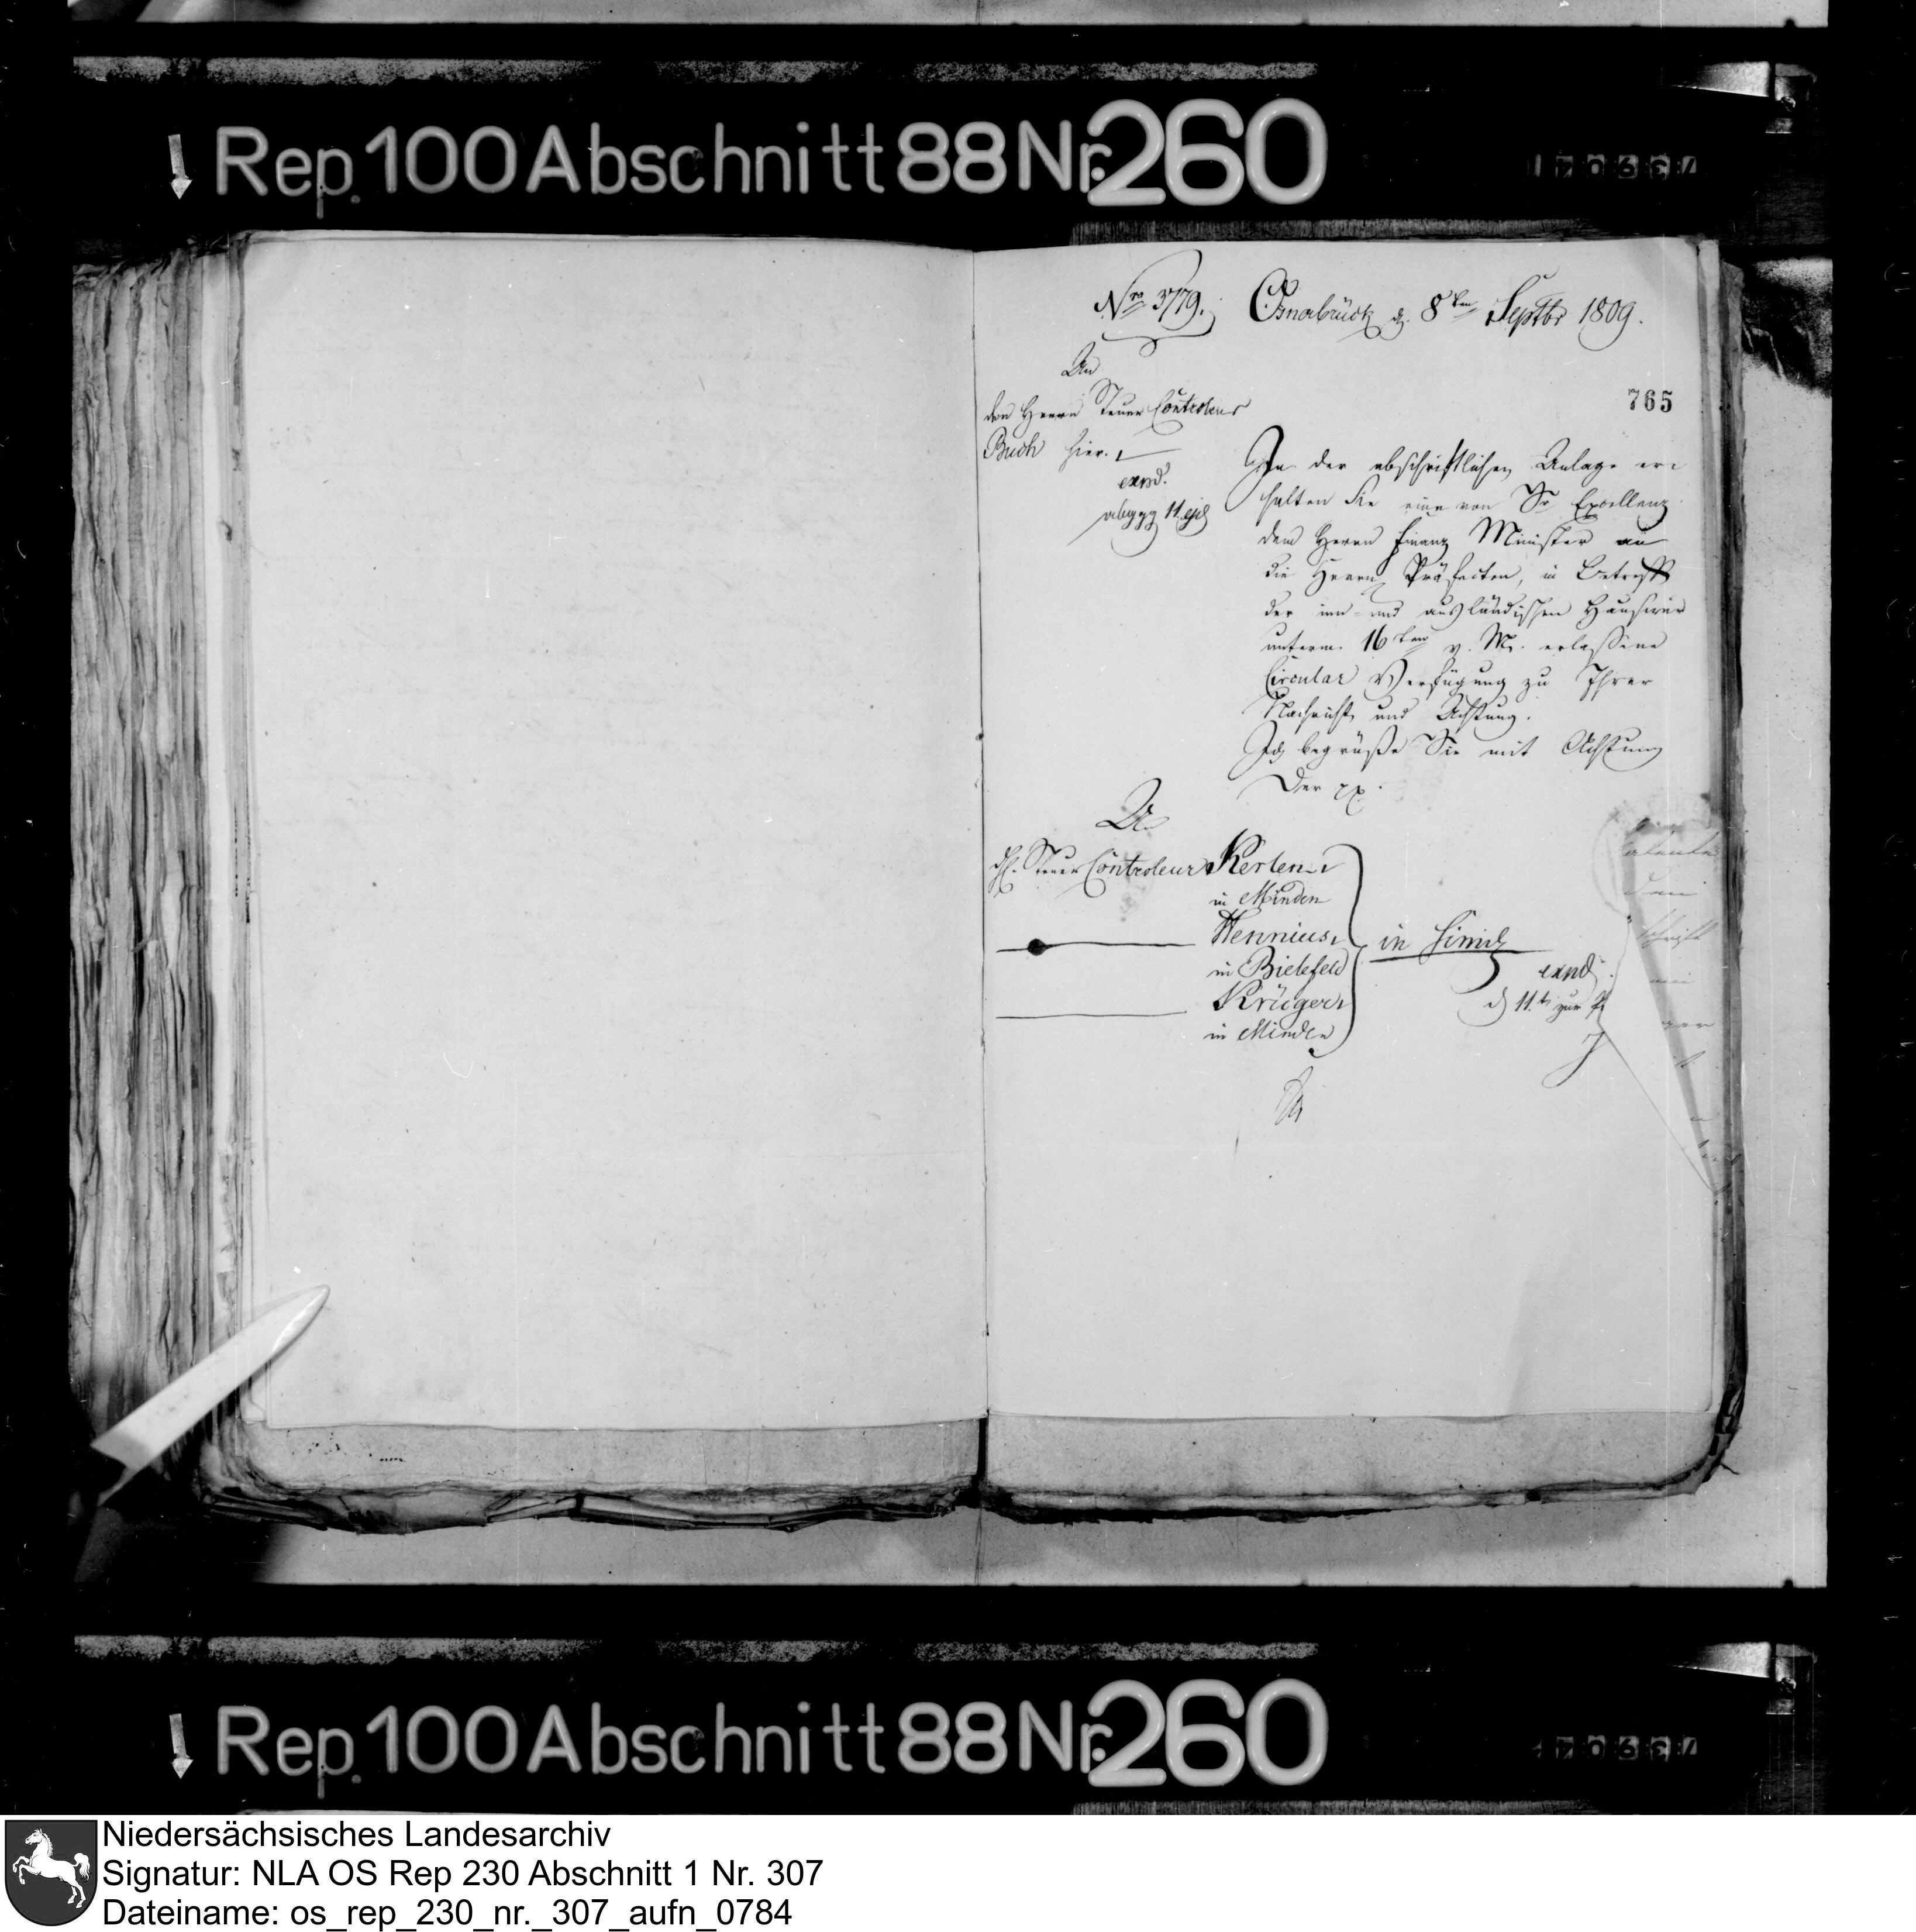 Rep. 100 Abschnitt 88 Nr. 260
Nro 3779. Osnabrück d. 8ten Septbr 1809.
765
An
den Herrn Steuer Controleur
Buch hier.
exped.
abgeg 11 ejd
In der abschriftlichen Anlage er-
halten Sie eine von Sr Excellenz
dem Herrn Finanz Minister an
die Herrn Präfecten, in Betreff
der inn- und ausländischen Hausirer
unterm 16ten v. M. erlassene
Circular Verfügung zu Ihrer
Nachricht und Achtung.
Ich begrüße Sie mit Achtung
Der
An
H. Steuer Controleur Kerten
in Minden
Hennius
in Bielefeld
Krüger
in Minden
in simili
d 11t zur
Rep. 100 Abschnitt 88 Nr. 260
Niedersächsisches Landesarchiv
Signatur: NLA OS Rep 230 Abschnitt 1 Nr. 307
Dateiname: os_rep_230_nr._307_aufn_0784